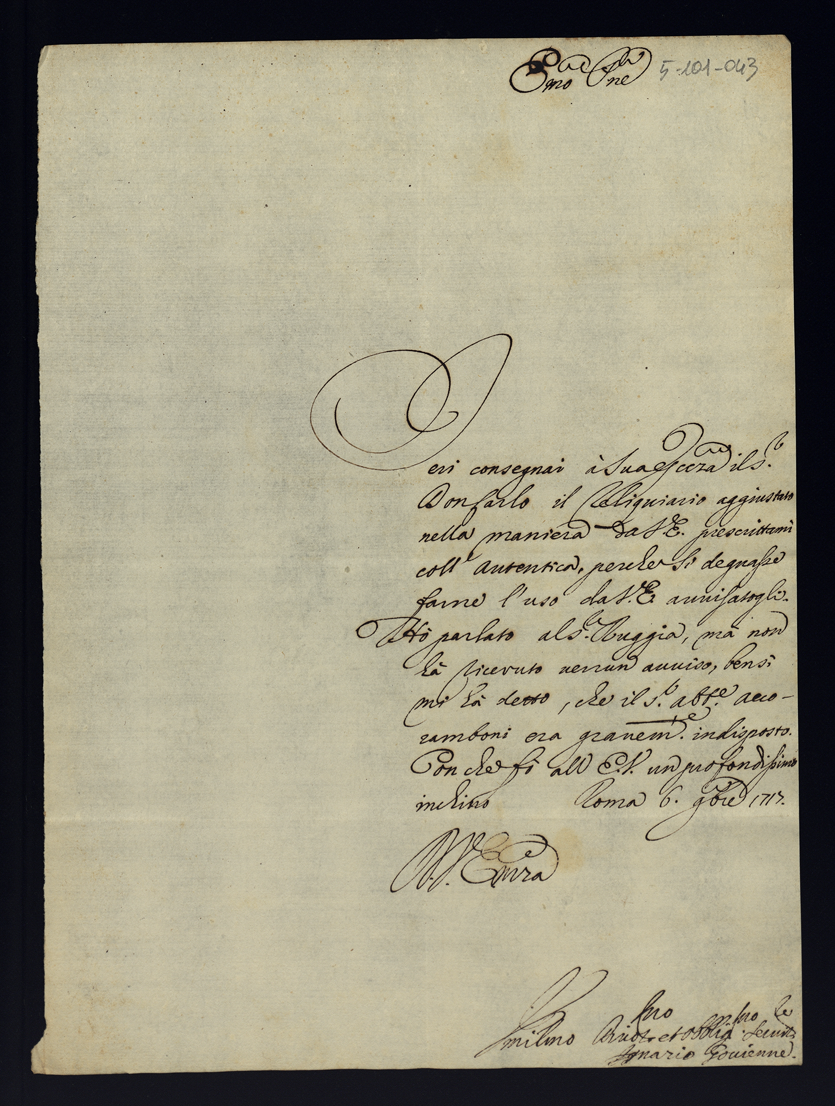 Em̃o Pñe 5-101-043
Ieri consegnai à Sua Eccza il s.r
Don Carlo il Reliquiario aggiustato
nella maniera da V.E. prescrittami
coll' Autentica, perche si degnasse
farne l'uso da V.E. avvisatogli.
Hò parlato al s.r Ruggia, mà non
hà ricevuto verrun avviso, bensi
mi hà detto, che il s.r abb.e acco-
ramboni era gravem.te indisposto.
Con che fò all' E.V. un profondissimo
inchino Roma 6. 9bre 1717.
D. V. Emza
Vmilmo Divotmo et obbligmo Servitre